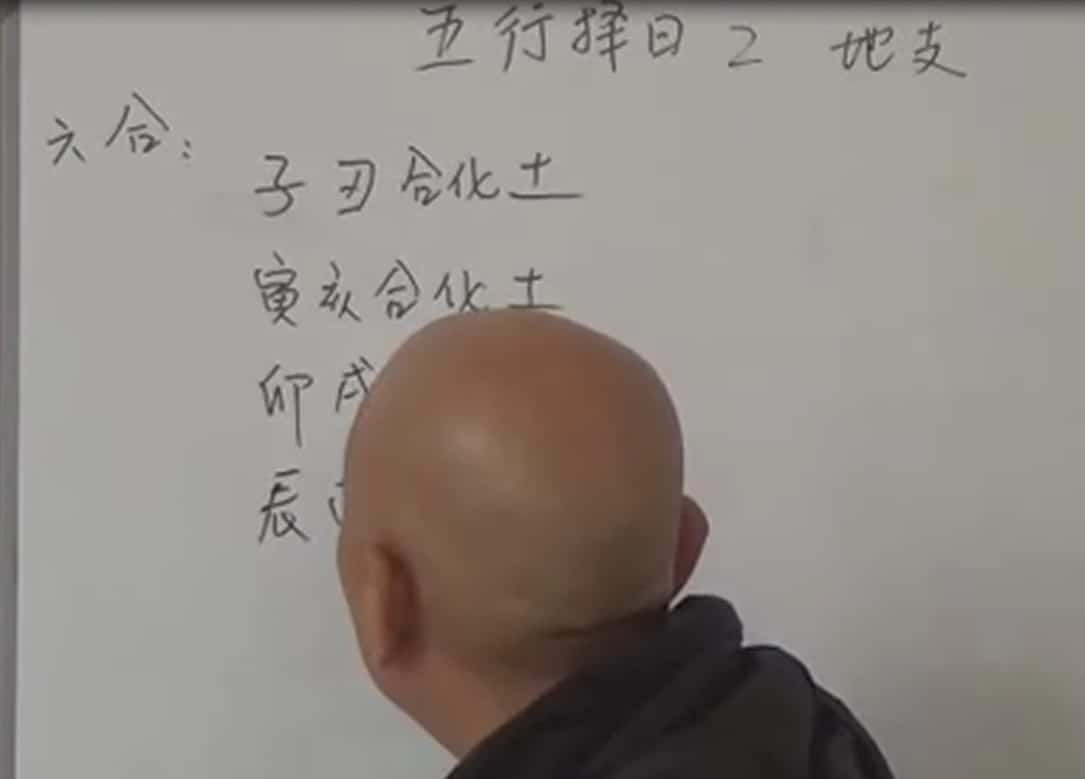 五行择日2 地支
六合：
子丑合化土
寅亥合化土
卯戌
辰